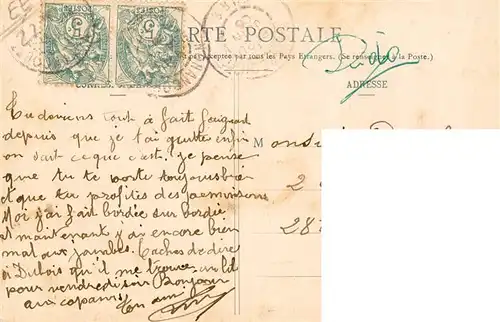 CARTE POSTALE
pas acceptée par tous les Pays Etrangers. (Se renseigner à la Poste.)
ADRESSE
Tu deviens tout à fait feignant
depuis que je t'ai quitté enfin
on sait ce que c'est. Je pense
que tu te porte toujours bien
et que tu profites des permissions
Moi j'ai fait bordée sur bordée
et maintenant j'ai encore bien
mal aux jambes. Taches de dire
à Dubois qu'il me trouve un lit
pour vendredi soir Bonjour
aux copains. Ton ami
Monsieur
2
28